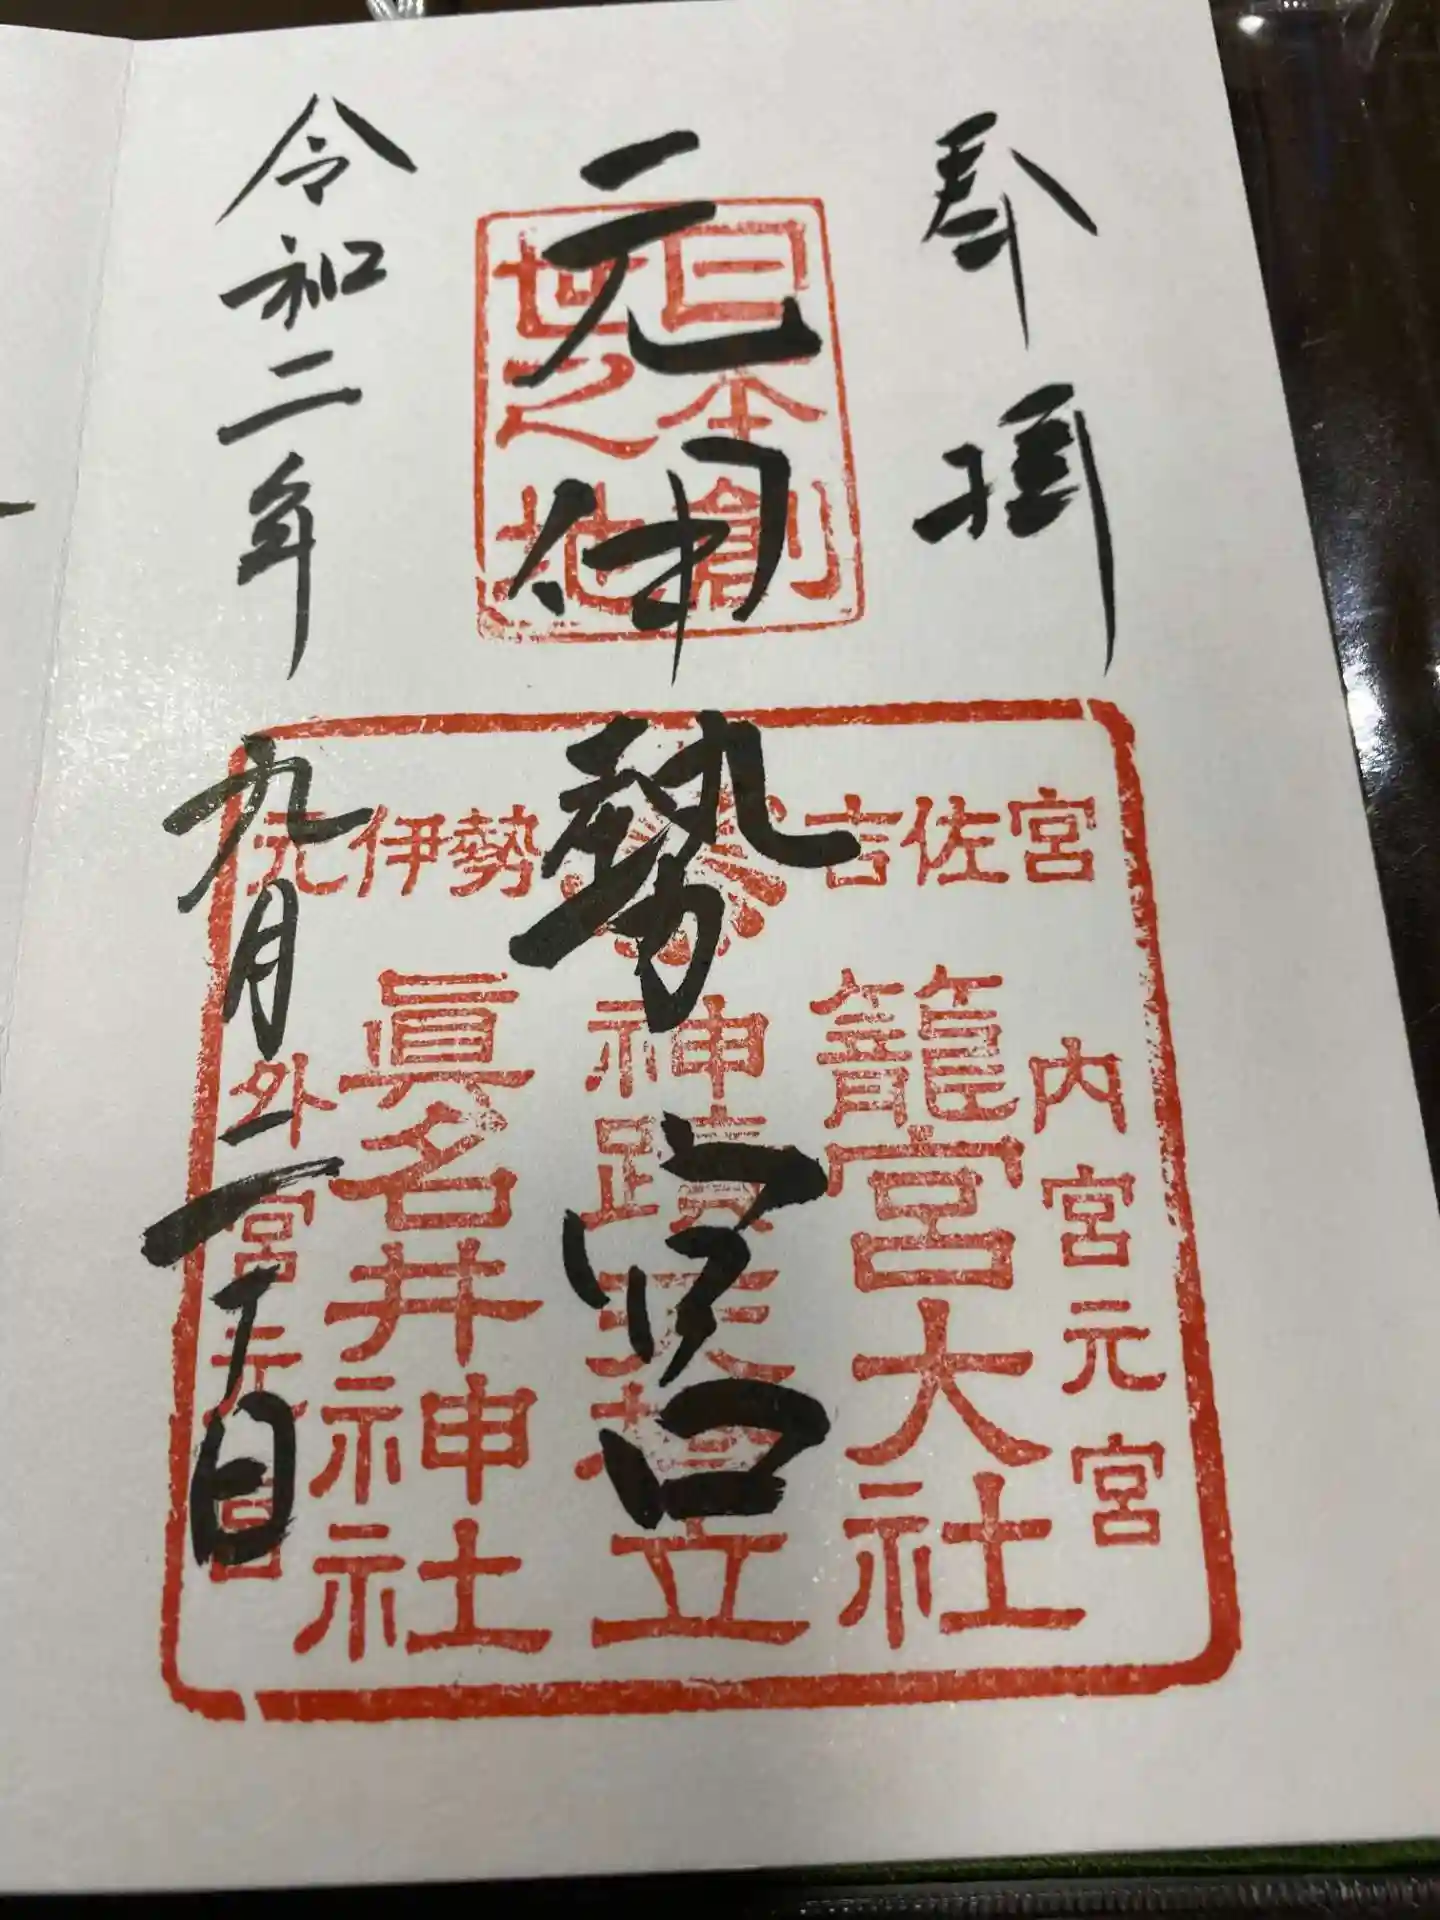 奉拝
元伊勢宮
令和二年
九月二十日
日本創
世之地
元伊勢
吉佐宮
内宮元宮
籠宮大社
神蹟
立
眞名井神社
外宮元宮